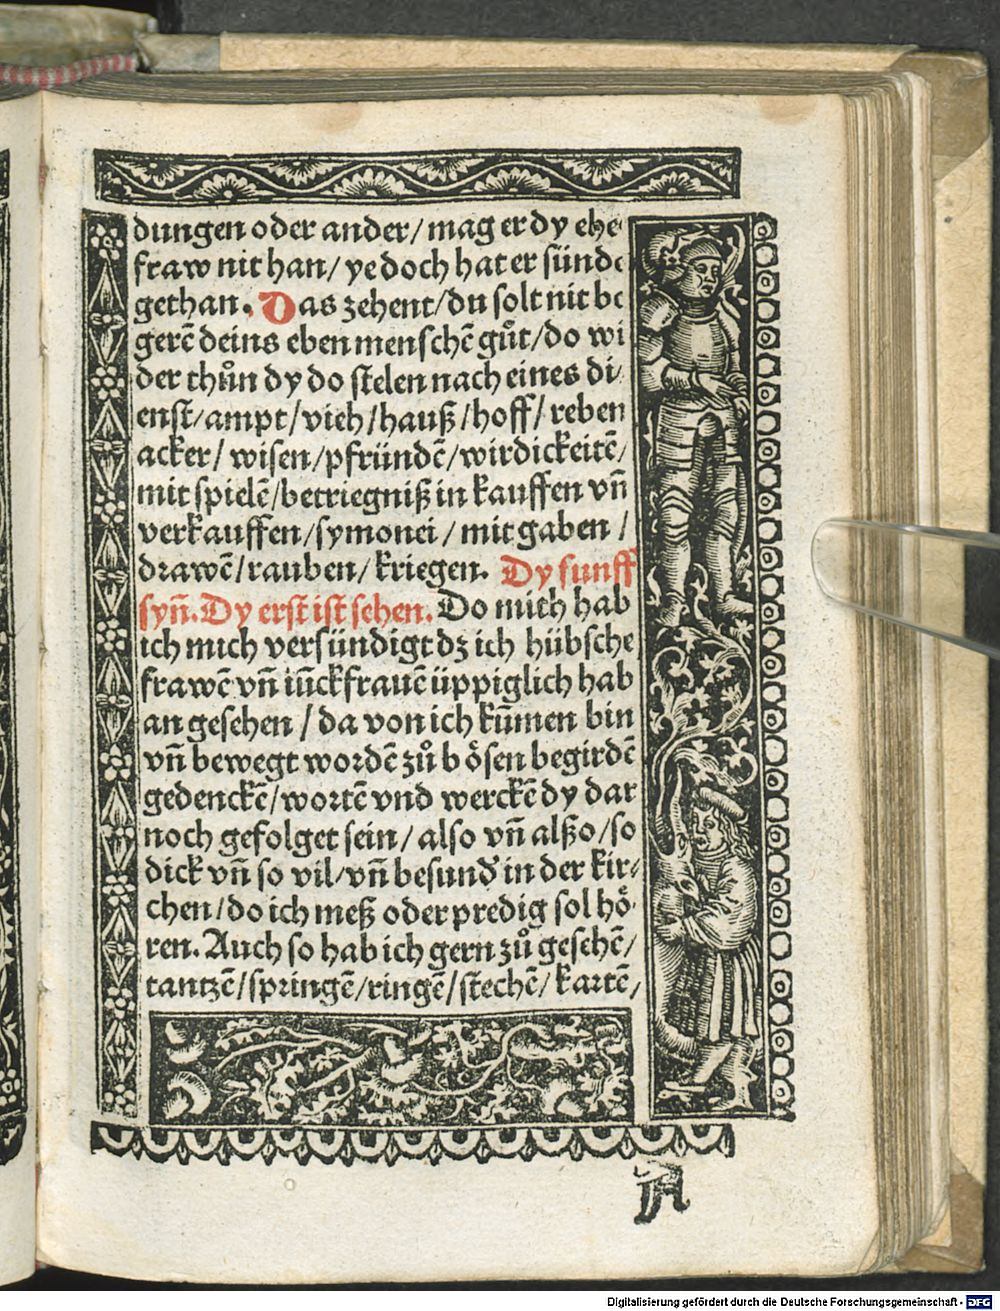 dungen oder ander/ mag er dy ehe
fraw nit han/ ye doch hat er sünde
gethan. Das zehent/ du solt nit be
gerē deins eben menschē gůt/ do wi
der thůn dy do stelen nach eines di
enst/ ampt/ vieh/ hauß/ hoff/ reben
acker/ wisen/ pfründē/ wirdickeitē/
mit spielē/ betriegniß in kauffen vñ
verkauffen/ symonei/ mit gaben/
drawē/ rauben/ kriegen. Dy funff
syñ. Dy erst ist sehen. Do mith hab
ich mich versündigt dz ich hübsche
frawē vñ iūckfrauē üppiglich hab
an gesehen/ da von ich kūmen bin
vñ bewegt wordē zů bősen begirdē
gedenckē/ wortē vnd werckē dy dar
noch gefolget sein/ also vñ alßo/ so
dick vñ so vil/ vñ besund in der kir⸗
chen/ do ich meß oder predig sol hő⸗
ren. Auch so hab ich gern zů gesehē/
tantzē/ springē/ ringē/ stechē/ kartē/
A
Digitalisierung gefördert durch die Deutsche Forschungsgemeinschaft - DFG